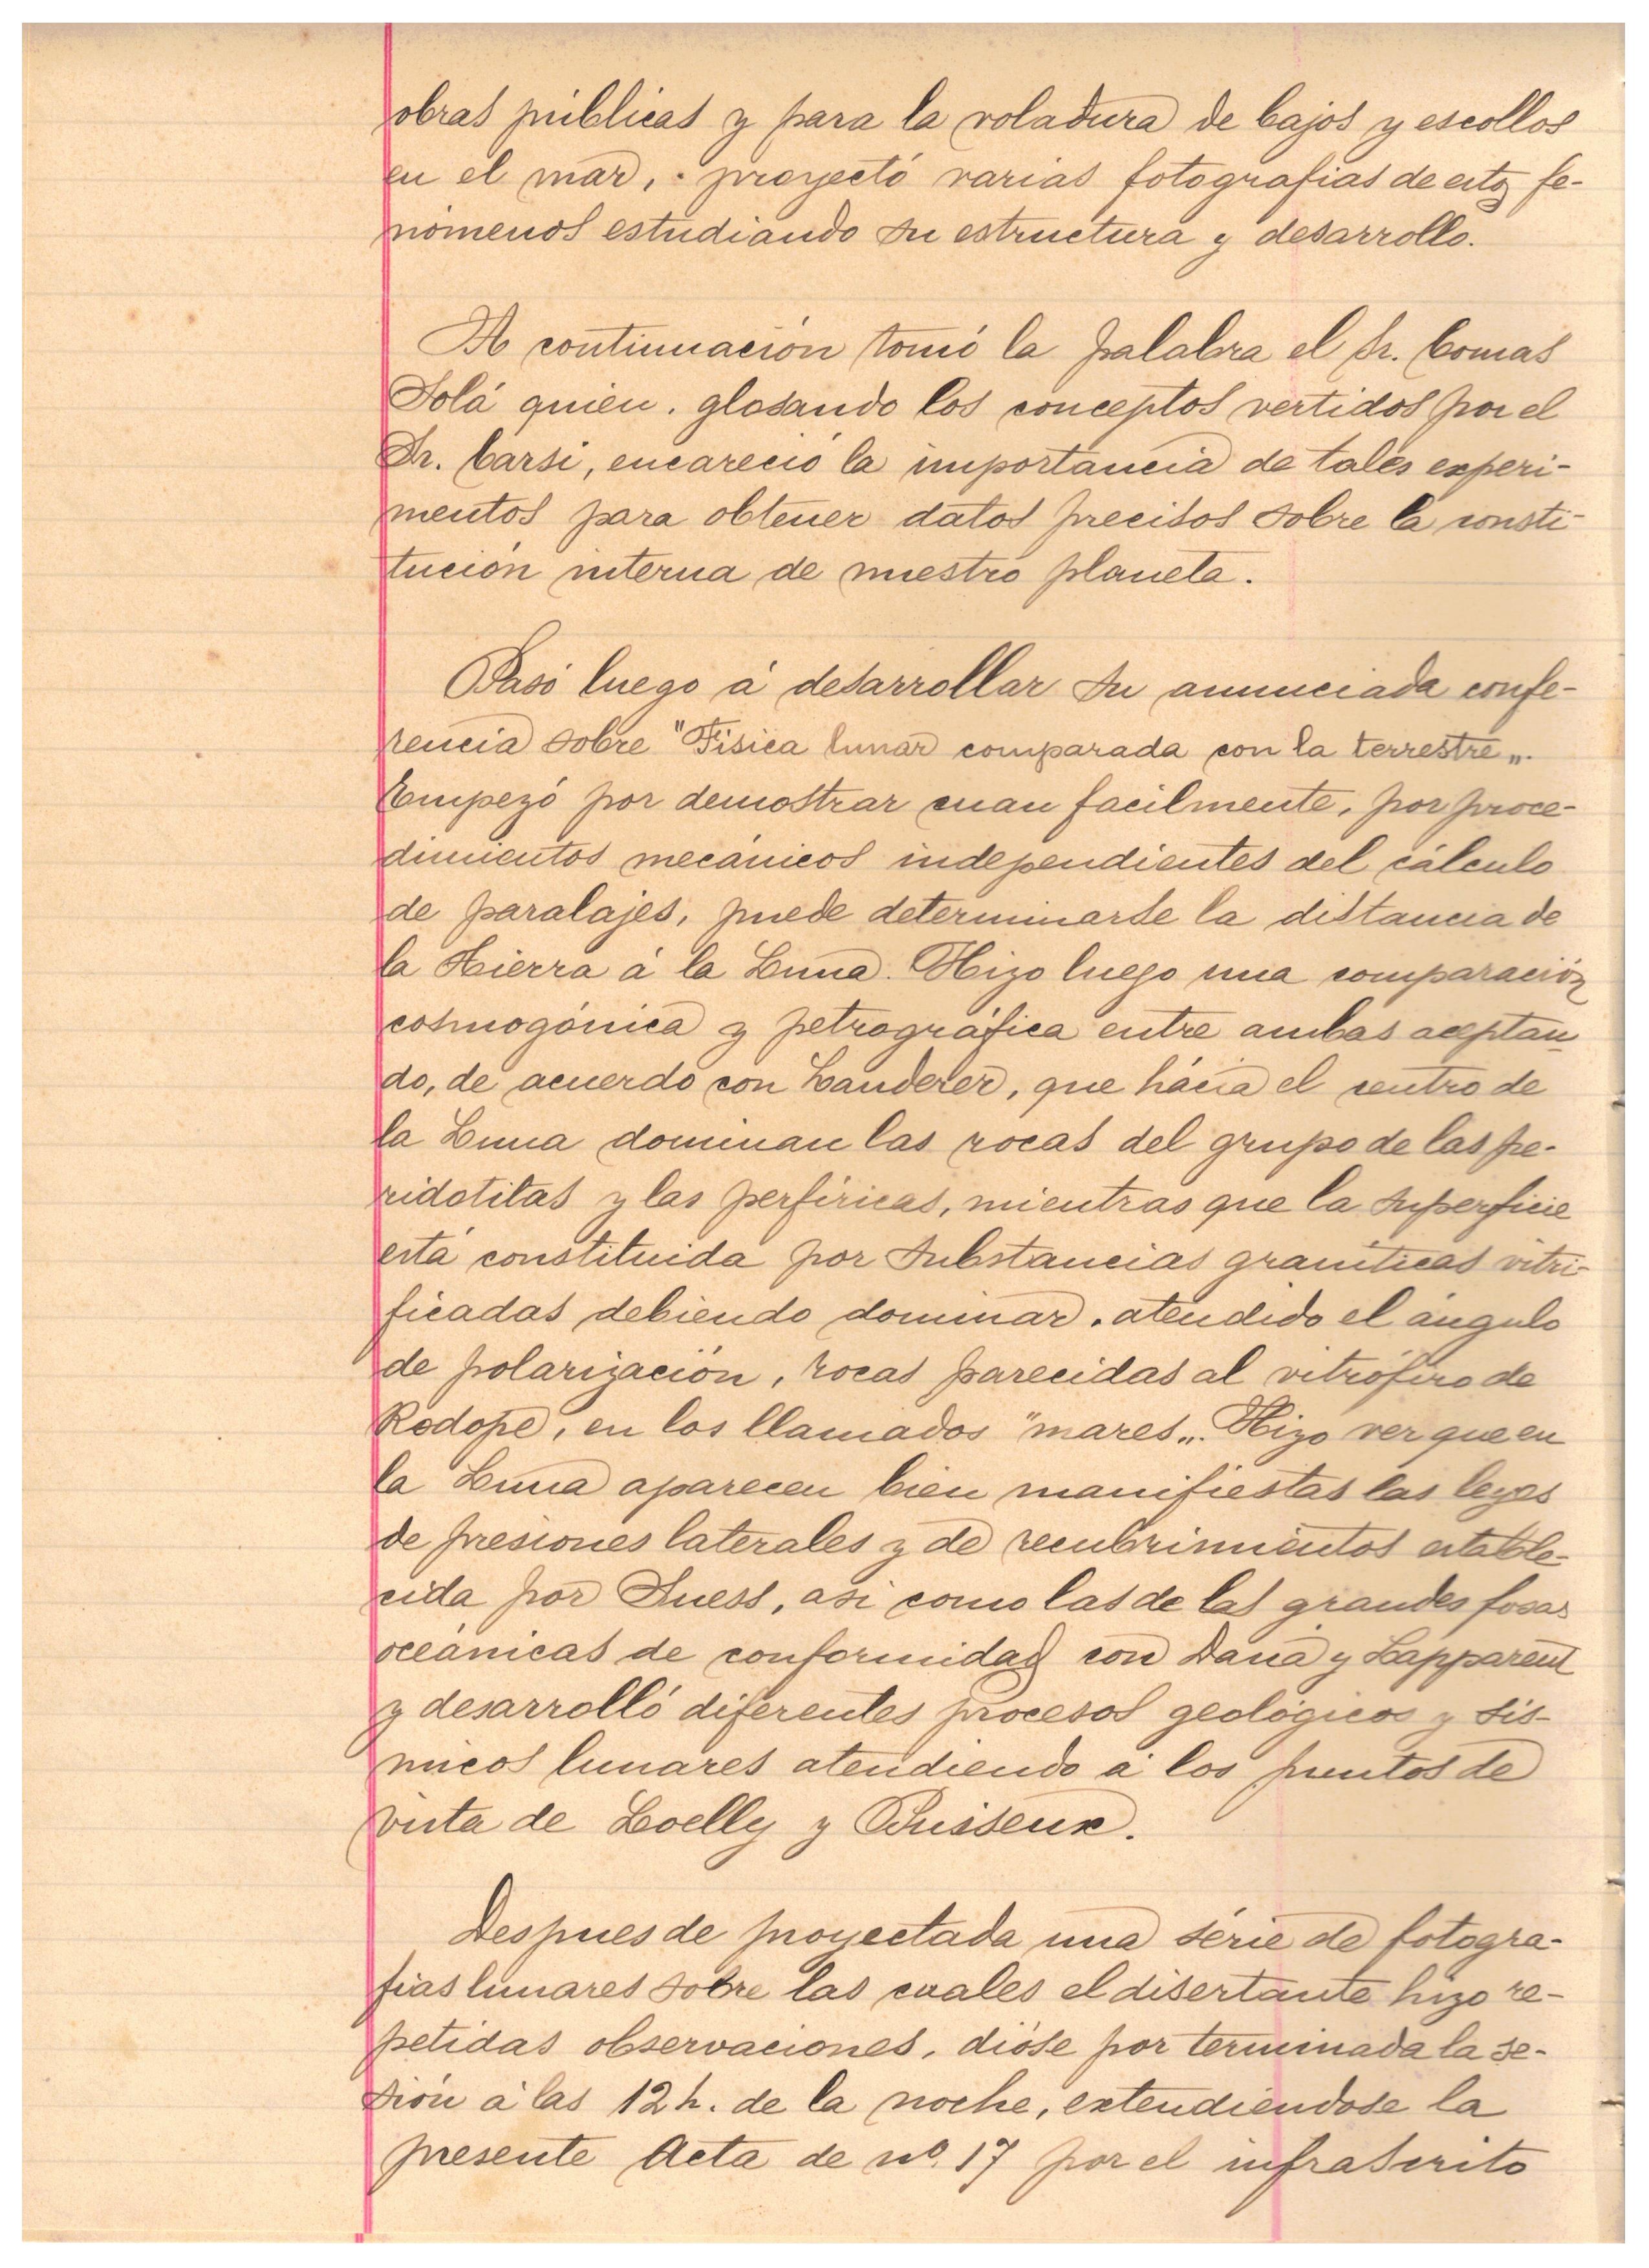 obras públicas y para la voladura de bajos y escollos
en el mar, proyectó varias fotografias de estos fe-
nómenos estudiando su estructura y desarrollo.
A continuación tomó la palabra el Sr. Comas
Solá quien, glosando los conceptos vertidos por el
Sr. Carsi, encareció la importancia de tales experi-
mentos para obtener datos precisos sobre la consti-
tución interna de nuestro planeta.
Pasó luego á desarrollar su anunciada confe-
rencia sobre "Fisica lunar comparada con la terrestre„.
Empezó por demostrar cuan facilmente, por proce-
dimientos mecánicos independientes del cálculo
de paralajes, puede determinarse la distancia de
la Tierra á la Luna. Hizo luego una comparación
cosmogónica y petrográfica entre ambas aceptan-
do, de acuerdo con Landerer, que hácia el centro de
la Luna dominan las rocas del grupo de las pe-
ridotitas y las perfíricas, mientras que la superficie
está constituida por substancias graníticas vitri-
ficadas debiendo dominar, atendido el ángulo
de polarización, rocas parecidas al vitrófiro de
Rodope, en los llamados "mares„. Hizo ver que en
la Luna aparecen bien manifiestas las leyes
de presiones laterales y de recubrimientos estable-
cida por Suess, asi como las de las grandes fosas
oceánicas de conformidad con Dana y Lapparent
y desarrolló diferentes procesos geológicos y sis-
micos lunares atendiendo á los puntos de
vista de Loelly y Puisseux.
Despues de proyectada una série de fotogra-
fias lunares sobre las cuales el disertante hizo re-
petidas observaciones, dióse por terminada la se-
sión á las 12 h. de la noche, extendiendose la
presente Acta de nº. 17 por el infrascrito